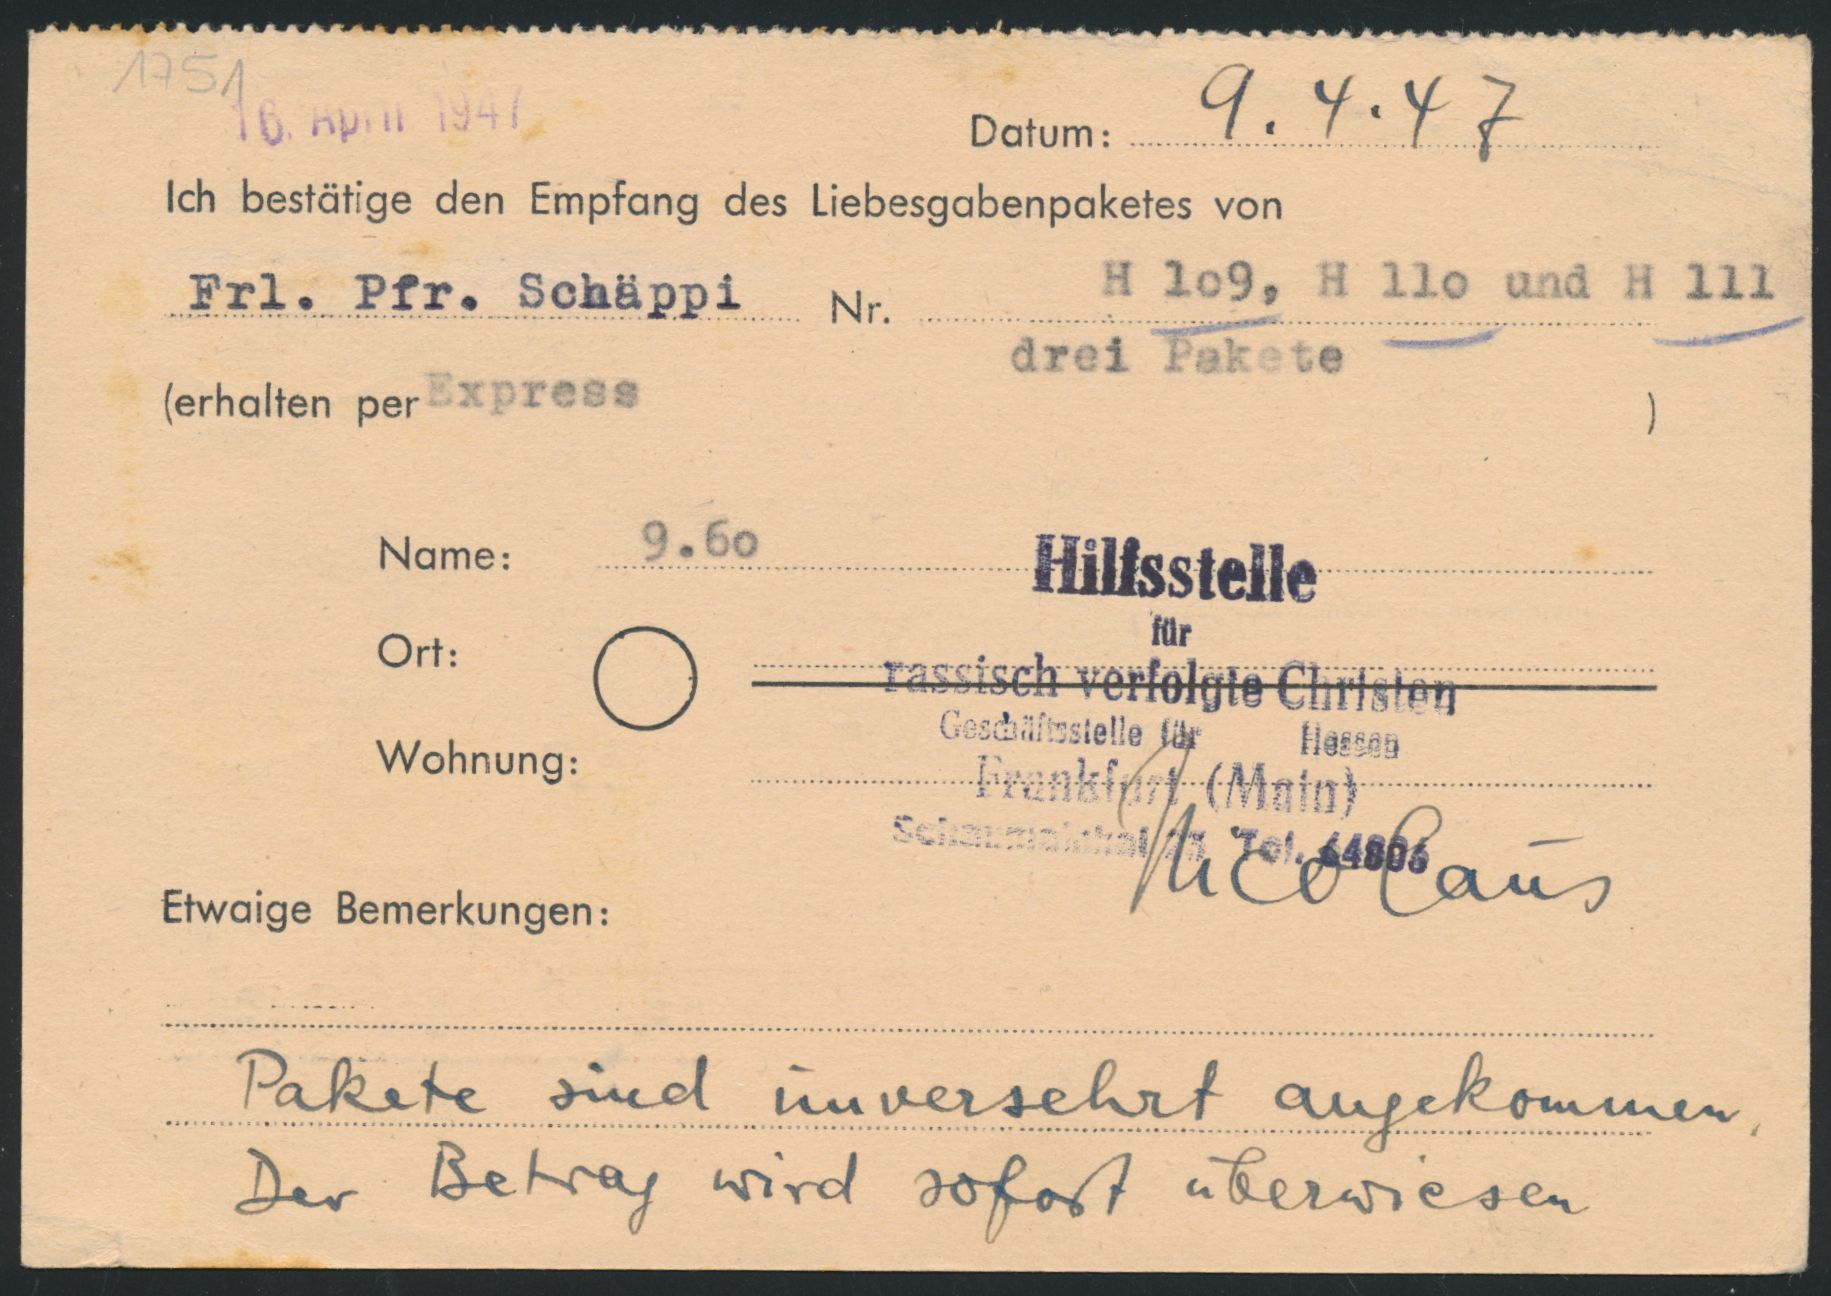 1751
16. April 1947
Datum: 9.4.47
Ich bestätige den Empfang des Liebesgabenpaketes von
Frl. Pfr. Schäppi Nr. H lo9, H llo und H lll
drei Pakete
(erhalten per Express )
Name: 9.6o
Hilfsstelle
für
Ort:
rassisch verfolgte Christen
Geschäftsstelle für Hessen
Wohnung:
Frankfurt (Main)
Schaumainkai 23 Tel. 64806
Nicolaus
Etwaige Bemerkungen:
Pakete sind unversehrt angekommen.
Der Betrag wird sofort überwiesen